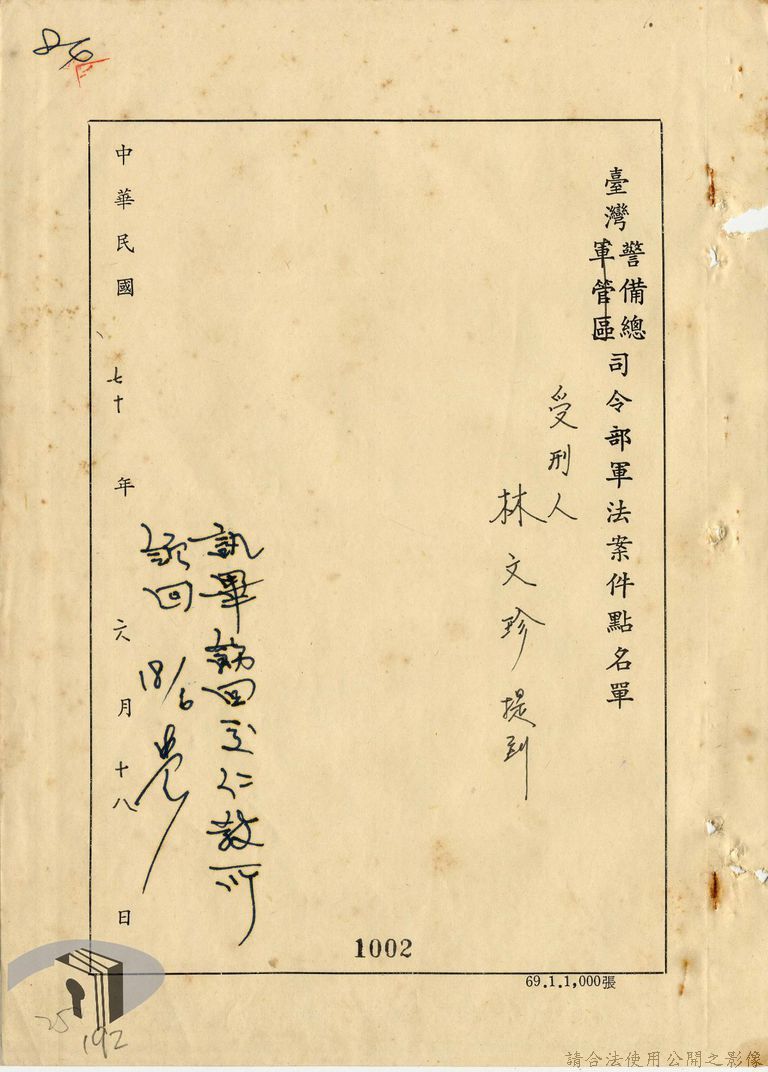 臺灣警備總軍管區司令部軍法案件點名單
受刑人
林文珍 提到
訊畢 回 仁教所
回 18/6
中華民國七十年六月十八日
1002
69.1.1,000張
192
請合法使用公開之影像